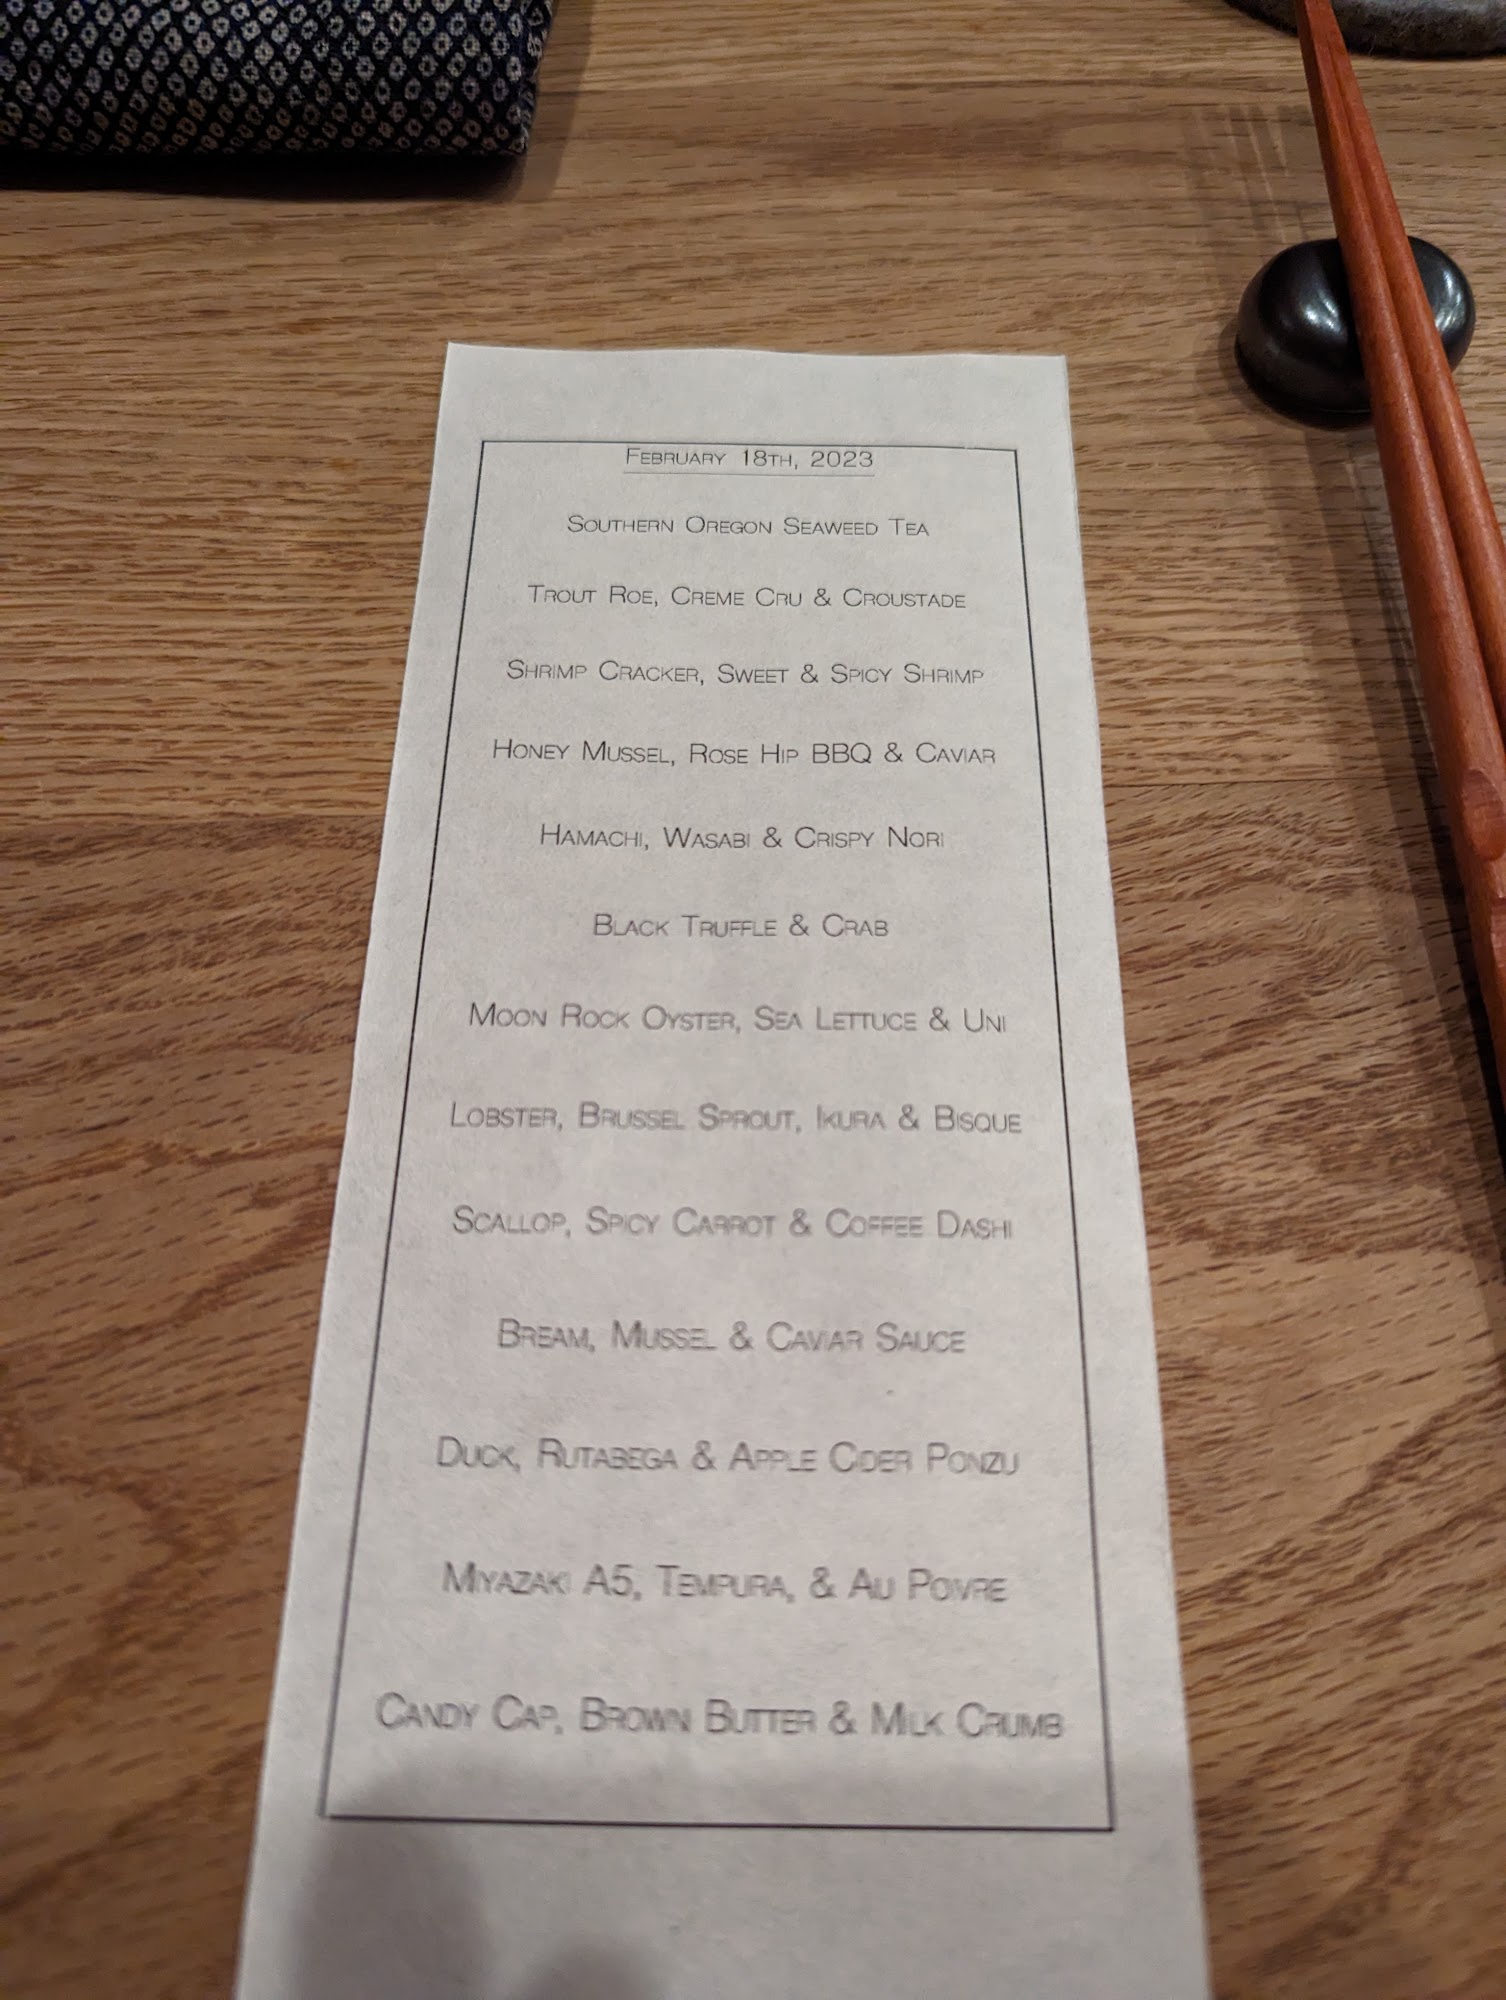 February 18th, 2023
Southern Oregon Seaweed Tea
Trout Roe, Creme Cru & Croustade
Shrimp Cracker, Sweet & Spicy Shrimp
Honey Mussel, Rose Hip BBQ & Caviar
Hamachi, Wasabi & Crispy Nori
Black Truffle & Crab
Moon Rock Oyster, Sea Lettuce & Uni
Lobster, Brussel Sprout, Ikura & Bisque
Scallop, Spicy Carrot & Coffee Dashi
Bream, Mussel & Caviar Sauce
Duck, Rutabega & Apple Cider Ponzu
Miyazaki A5, Tempura, & Au Poivre
Candy Cap, Brown Butter & Milk Crumb